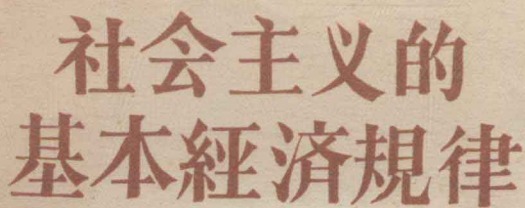 社会主义的
基本經済規律